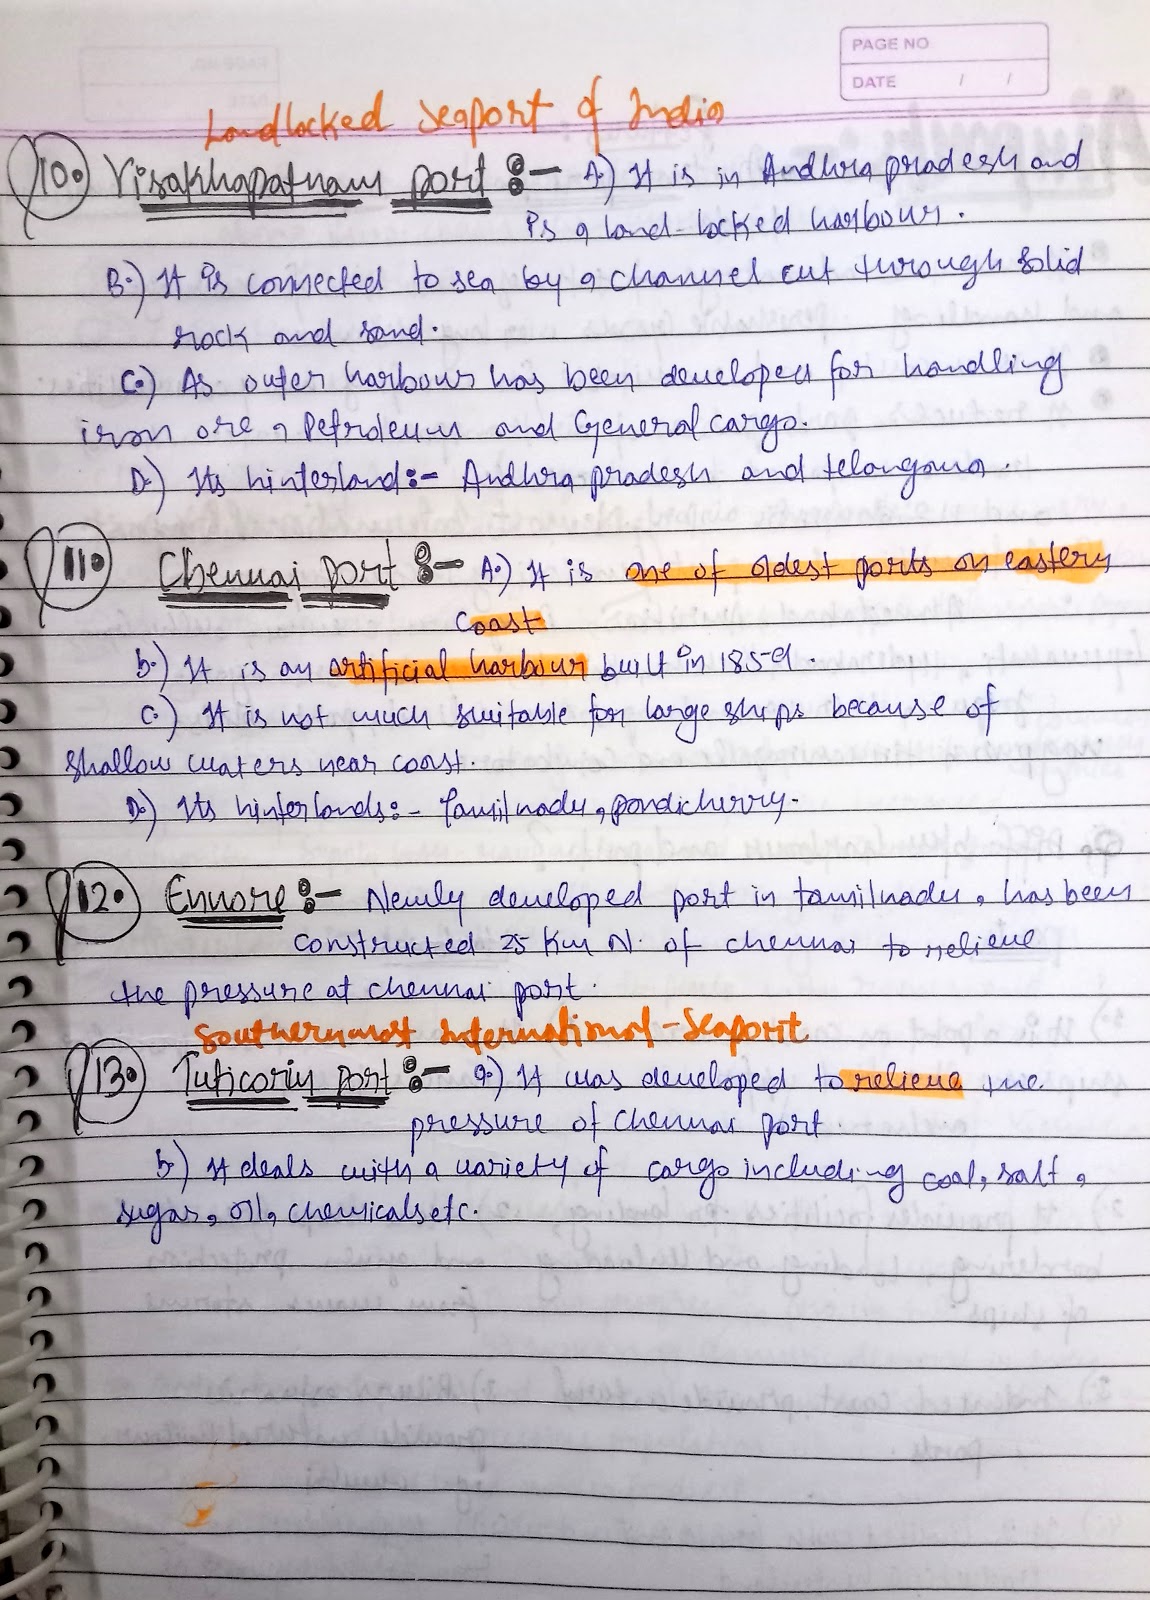 PAGE NO
DATE / /
Landlocked seaport of India
10. Visakhapatnam port :- A.) It is in Andhra pradesh and
is a land-locked harbour.
B.) It is connected to sea by a channel cut through solid
rock and sand.
C.) As outer harbour has been developed for handling
iron ore, Petroleum and General cargo.
D.) Its hinterland:- Andhra pradesh and telangana.
11. Chennai port :- A.) It is one of oldest ports on eastern
coast
b.) It is an artificial harbour built in 1859.
C.) It is not much suitable for large ships because of
shallow waters near coast.
D.) Its hinterlands:- Tamilnadu, pondicherry.
12. Ennore :- Newly developed port in tamilnadu, has been
constructed 25 Km N. of chennai to relieve
the pressure at chennai port.
Southernmost International-Seaport
13. Tuticorin port :- a.) It was developed to relieve the
pressure of chennai port.
b) It deals with a variety of cargo including coal, salt,
sugar, oil, chemicals etc.